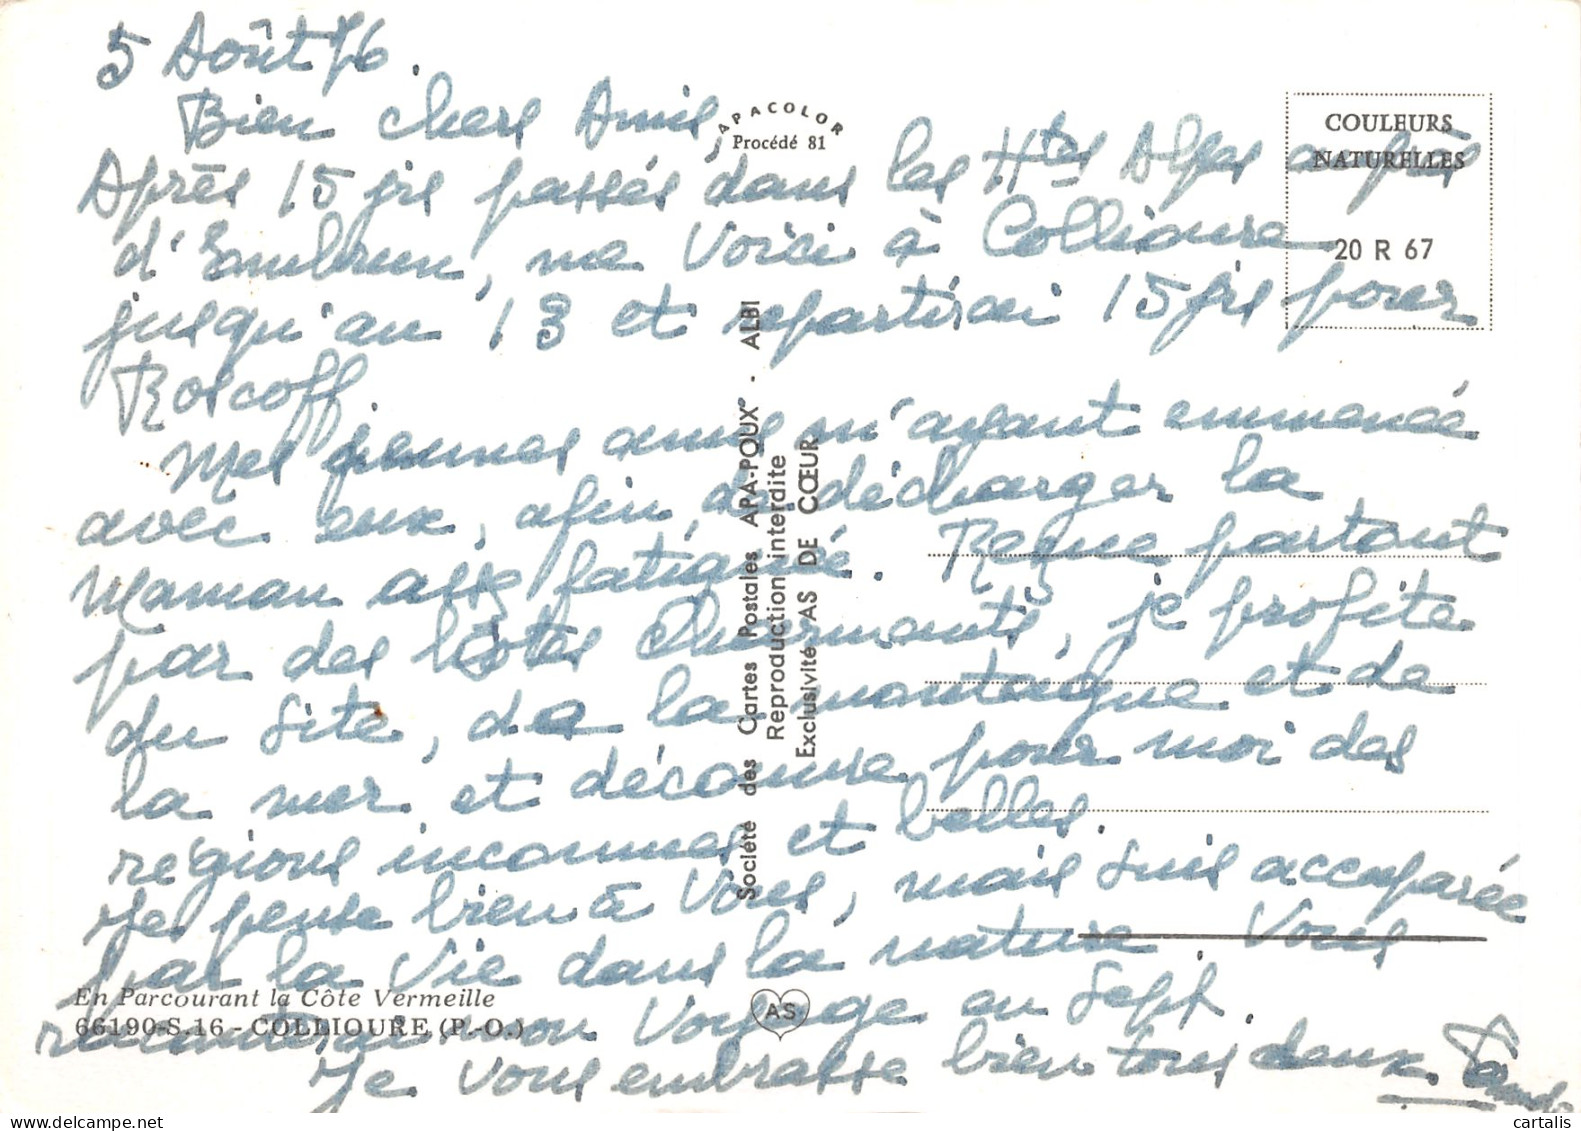 5 Août 76.
Bien chers Amis,
APACOLOR
Procédé 81
COULEURS
NATURELLES
20 R 67
Après 15 jrs passés dans les Htes Alpes auprès
d'Embrun, me voici à Collioure
jusqu'au 13 et repartirai 15 jrs pour
Roscoff.
Mes jeunes amis m'ayant emmenée
avec eux, afin de décharger la
Maman assez fatiguée. Reçue partout
par des hôtes charmants, je profite
du site, de la montaigne et de
la mer et découvre pour moi des
régions inconnues et belles.
Je pense bien à vous, mais suis accaparée
par la vie dans la nature. Vous
raconterai mon voyage au Sept.
Je vous embrasse bien tous deux.
Société des Cartes Postales APA-POUX - ALBI
Reproduction interdite
Exclusivité AS DE CŒUR
En Parcourant la Côte Vermeille
66190-S.16 - COLLIOURE (P.-O.)
AS
cartalis